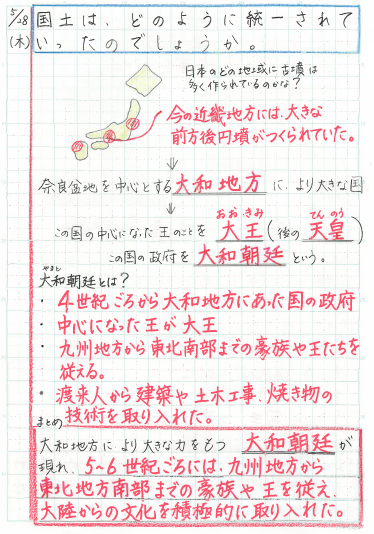 5/28
(木)
国土は、どのように統一されて
いったのでしょうか。
日本のどの地域に古墳は
多く作られているのかな?
今の近畿地方には、大きな
前方後円墳がつくられていた。
奈良盆地を中心とする大和地方に、より大きな国
おおきみ てんのう
この国の中心になった王のことを 大王(後の 天皇)
この国の政府を 大和朝廷 という。
やまと
大和朝廷とは?
・4世紀ごろから大和地方にあった国の政府
・中心になった王が大王
・九州地方から東北南部までの豪族や王たちを
従える。
・渡来人から建築や土木工事、焼き物の
技術を取り入れた。
まとめ
大和地方により大きな力をもつ 大和朝廷が
現れ、5~6世紀ごろには、九州地方から
東北地方南部までの豪族や王を従え、
大陸からの文化を積極的に取り入れた。